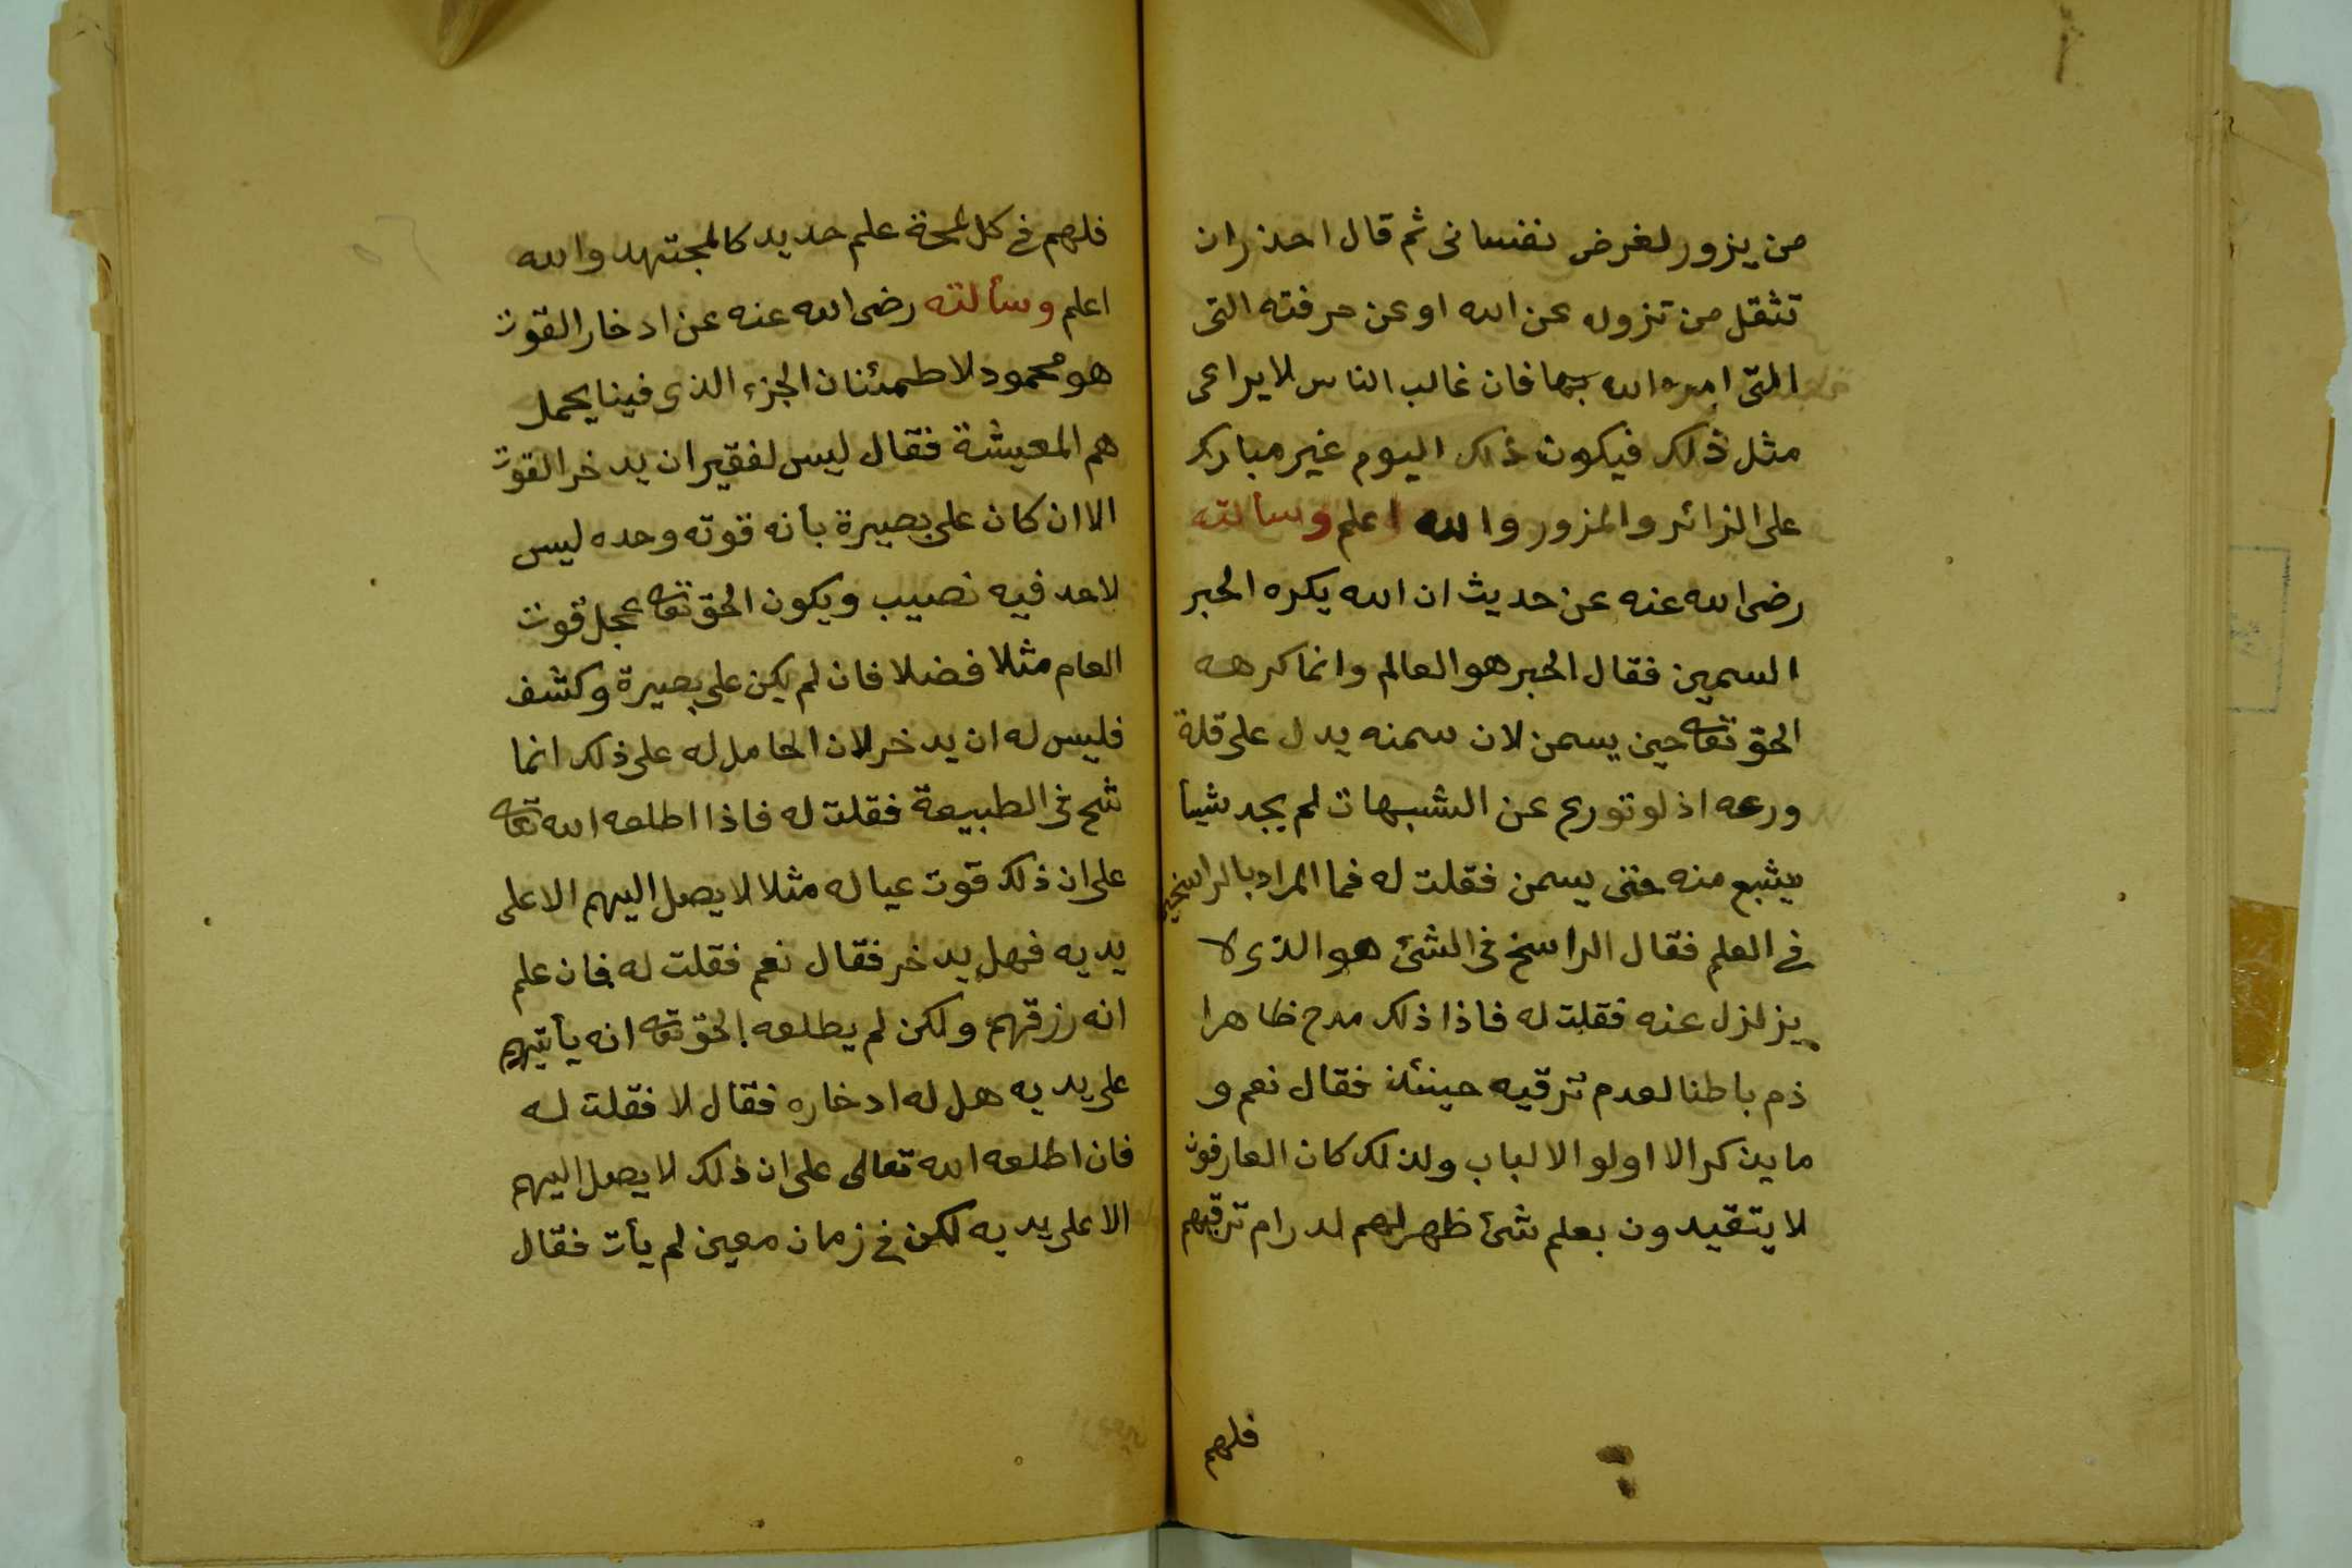 من يزور لغرض نفسانى ثم قال احذر ان
تثقل من تزوله عن الله او عن حرفته التى
التى امره الله بها فان غالب الناس لا يراعى
مثل ذلك فيكون ذلك اليوم غير مبارك
على الزائر والمزور والله اعلم وسألته
رضى الله عنه عن حديث ان الله يكره الحبر
السمين فقال الحبر هو العالم وانما كرهه
الحق تعا حين يسمن لان سمنه يدل على قلة
ورعه اذ لو تورع عن الشبهات لم يجد شيأ
يشبع منه حتى يسمن فقلت له فما المراد بالراسخين
فى العلم فقال الراسخ فى الشئ هو الذى لا
يزلزل عنه فقلت له فاذا ذلك مدح ظاهرا
ذم باطنا لعدم ترقيه حينئذ فقال نعم و
ما يذكر الا اولو الالباب ولذلك كان العارفون
لا يتقيدون بعلم شئ ظهر لهم لدرام ترقيهم
فلهم
فلهم فى كل لمحة علم جديد كالمجتهد والله
اعلم وسألته رضى الله عنه عن ادخار القوت
هو محمود لاطمئنان الجزء الذى فينا يحمل
هم المعيشة فقال ليس لفقير ان يدخر القوت
الا ان كان على بصيرة بأنه قوته وحده ليس
لاحد فيه نصيب ويكون الحق تعا عجل قوت
العام مثلا فضلا فان لم يكن على بصيرة وكشف
فليس له ان يدخر لان الحامل له على ذلك انما
شح فى الطبيعة فقلت له فاذا اطلعه الله تعا
على ان ذلك قوت عياله مثلا لا يصل اليهم الا على
يديه فهل يدخر فقال نعم فقلت له فان علم
انه رزقهم ولكن لم يطلعه الحق تعا انه يأتيهم
على يديه هل له ادخاره فقال لا فقلت له
فان اطلعه الله تعالى على ان ذلك لا يصل اليهم
الا على يديه لكن فى زمان معين لم يأت فقال